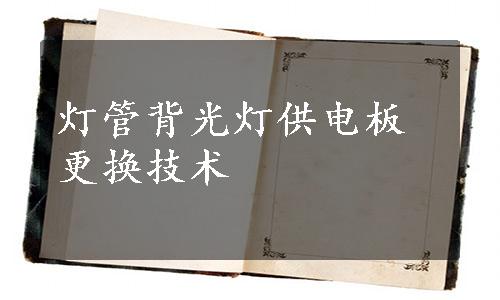 灯管背光灯供电板
更换技术